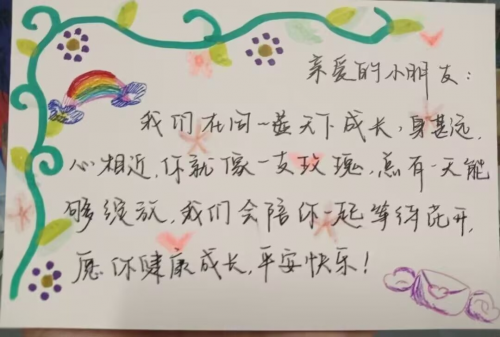 亲爱的小朋友：
我们在同一蓝天下成长，身甚远，
心相近，你就像一支玫瑰，总有一天能
够绽放，我们会陪你一起等待花开，
愿你健康成长，平安快乐！